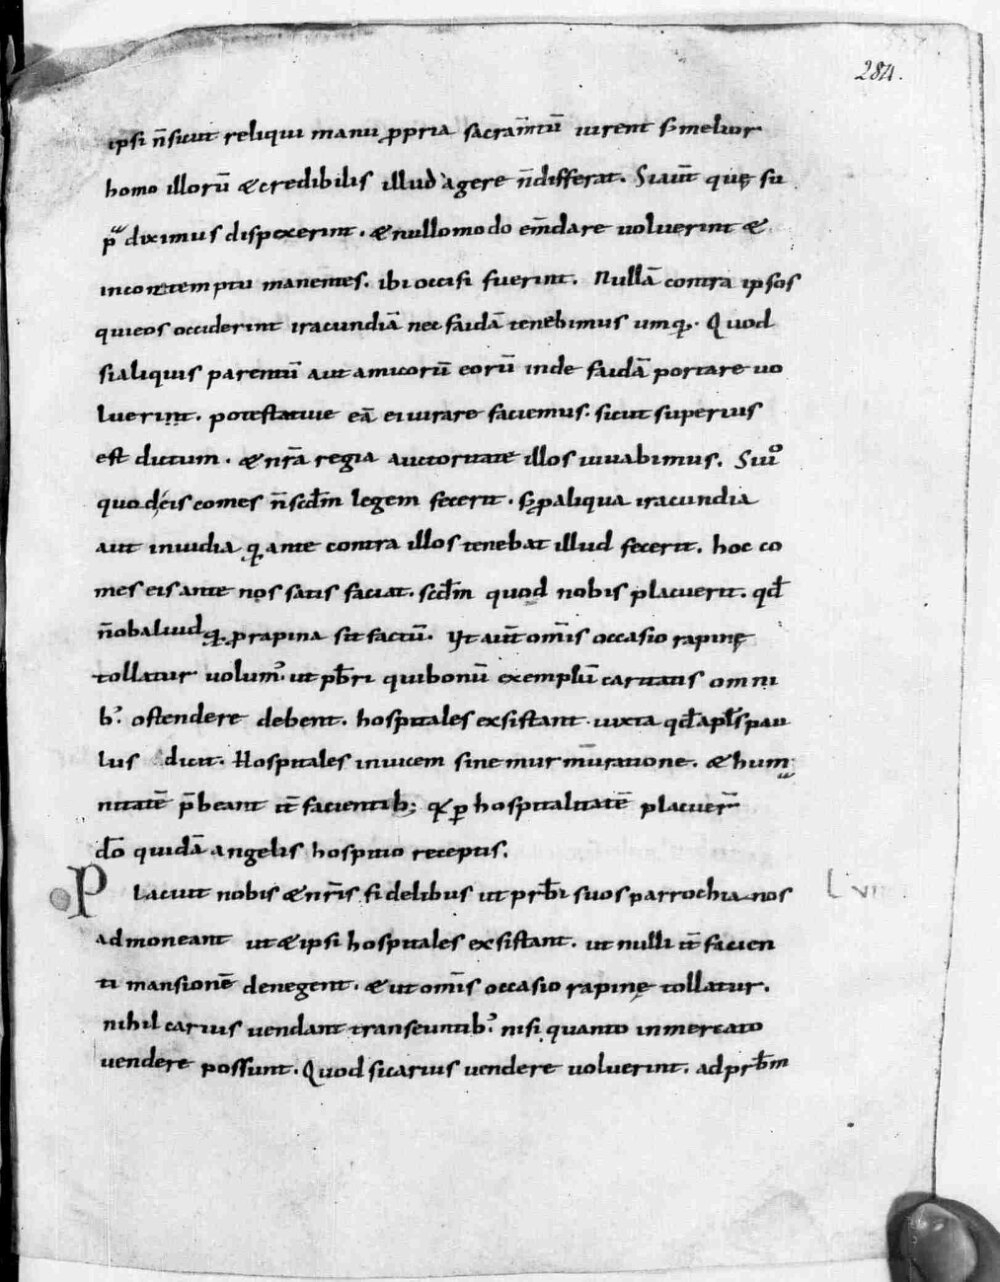 284.
ip̄si n̄ sicut reliqui manu ꝓpria sacram̄tū iurent sꝫ melior
homo illorū & credibilis illud agere n̄ differat. Si aut̄ quę su
p̄ diximus dispexerint. & nullomodo em̄dare uoluerint &
in contemptu manentes. ibi occisi fuerint. Nullā contra ipsos
qui eos occiderint iracundiā nec faidā tenebimus umq̄. Quod
si aliquis parentū aut amicorū eorū inde faidā portare uo
luerint. potestatiue eā ei iurare faciemus. sicut superius
est dictum. & nr̄a regia auctoritate illos iuuabimus. Si uͦ
quod eis comes n̄ scdm̄ legem fecerit. sꝫ ꝑ aliqua iracundia
aut inuidia q̄ ante contra illos tenebat illud fecerit. hoc co
mes eis ante nos satis faciat. scdm̄ quod nobis placuerit. qđ
n̄ ob aliud q̄ ꝑ rapina sit factū. Vt aut̄ om̄is occasio rapinę
tollatur uolum᾿ ut pb̄ri qui bonū exemplū caritatis omni
b᾿ ostendere debent. hospitales exsistant iuxta qđ apl̄s pau
lus dicit. Hospitales inuicem sine murmuratione. & hum
nitatē p̄beant it̄ facientib; q̄ ꝑ hospitalitatē placuer̄
dō quidā angelis hospitio receptis.
Placuit nobis & nr̄is fidelibus ut pr̄bi suos parrochianos
admoneant ut & ipsi hospitales exsistant. ut nulli it̄ facien
ti mansionē denegent. & ut om̄is occasio rapinę tollatur.
nihil carius uendant transeuntib᾿ nisi quanto in mercato
uendere possunt. Quod si carius uendere uoluerint. ad pr̄bm